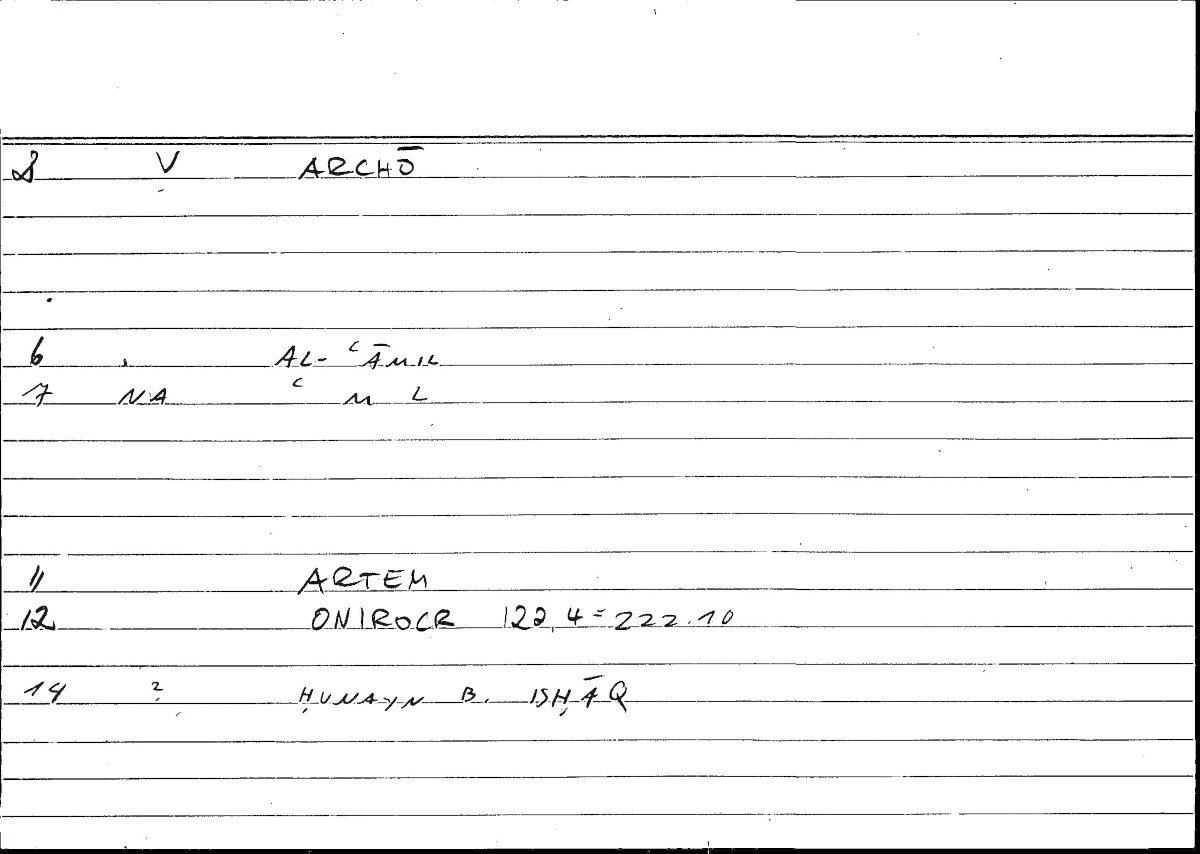 8 V ARCHŌ
6 AL-ʿĀMIL
7 NA ʿ M L
11 ARTEM
12 ONIROCR 122,4=222.10
14 2 ḤUNAYN B. ISḤĀQ